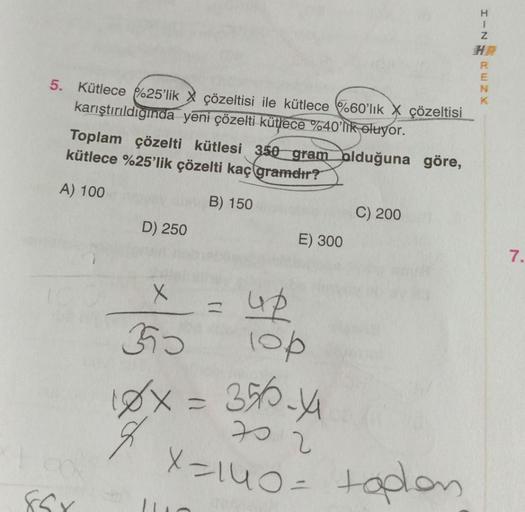 HIZ
HR
RENK
5. Kütlece %25'lik X çözeltisi ile kütlece %60'lık X çözeltisi
karıştırıldığında yeni çözelti kütlece %40'lık oluyor.
Toplam çözelti kütlesi 350 gram olduğuna göre,
kütlece %25'lik çözelti kaç gramdır?
A) 100 B) 150 C) 200
D) 250 E) 300
7.
x/350 = 40/100
10x = 350.4
70 2
x=140= toplam